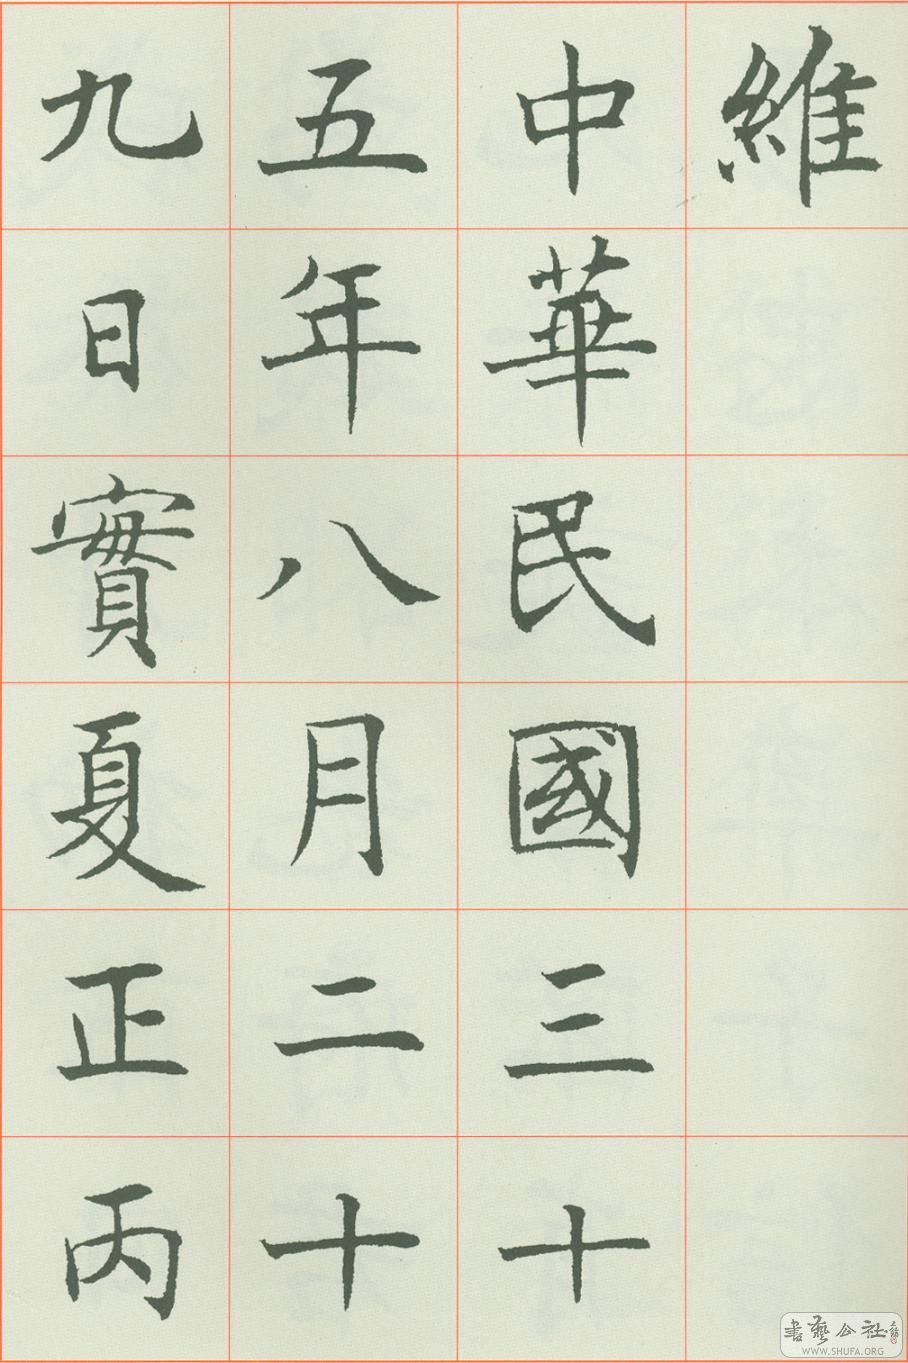 維
中華民國三十
五年八月二十
九日實夏正丙
書藝公社
WWW.SHUFA.ORG